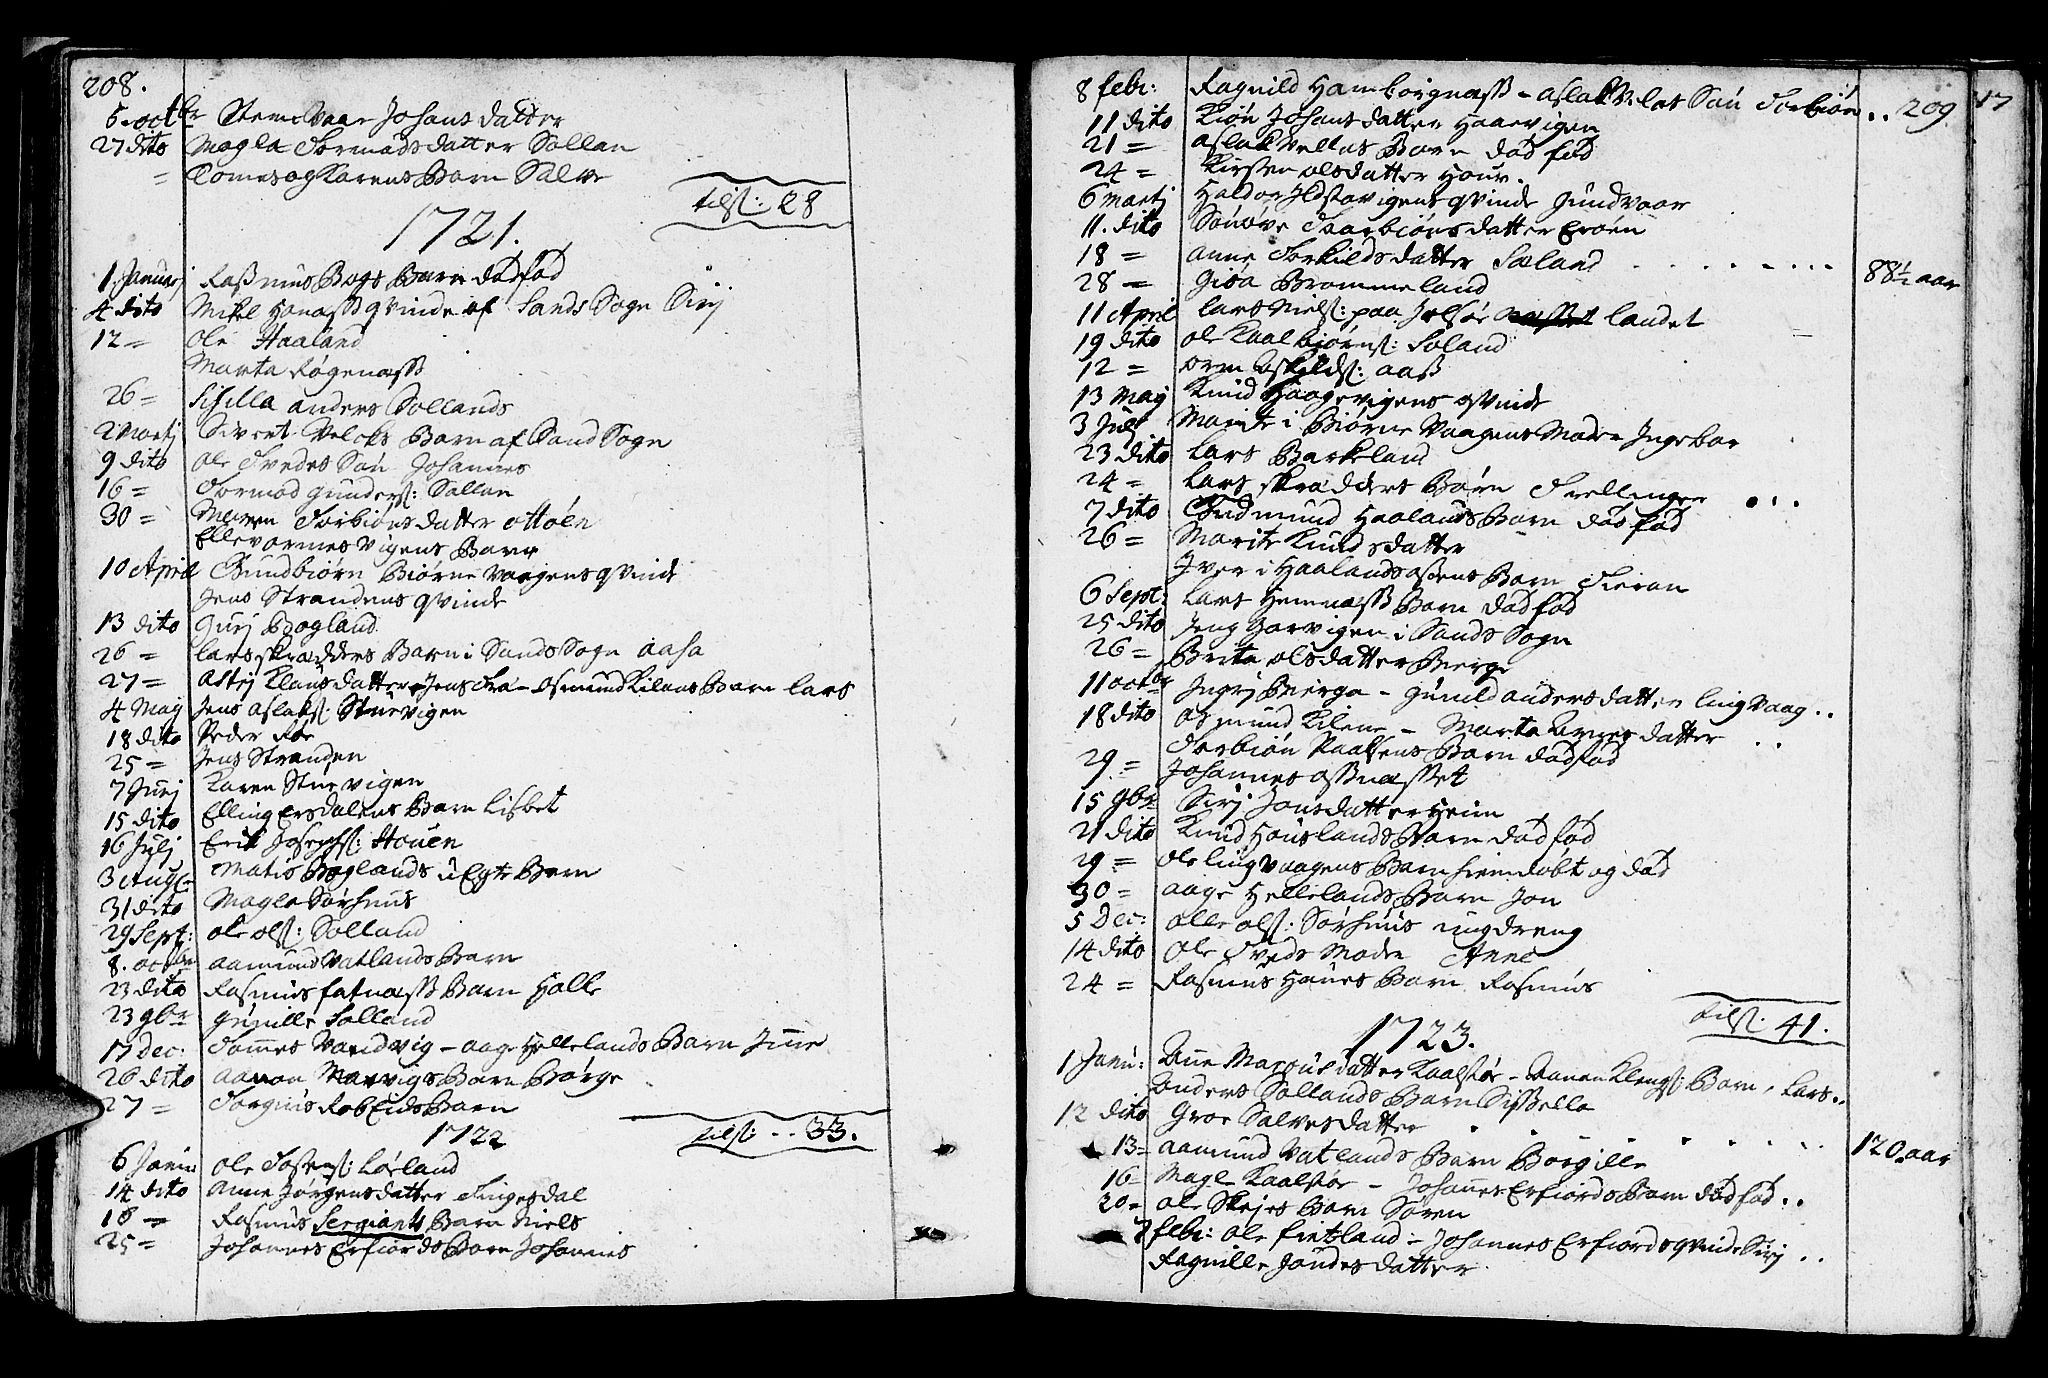 208.
5 octbr Steenvaar Johans datter
27 dito Magla Tormods datter Sollan
= Tomes og Karens Barn Salve
tils: 28
1721.
1 Januarj Rasmus Bogs Barn dødfød
4 dito Mikel Hanass qvinde af Sands Sogn Sirj
12 = Ole Haaland
Marta Røgenæss
26 = Sisilla anders Sollands
2 Martj Sivert Velcks Barn af Sand Sogn
9 dito Ole Tvedes Søn Johannes
16 = Tormod Gunders: Sollan
30 = Maren Torbiøns datter Ottøen
Ellevormes Vigens Barn
10 April Gundbiørn Biørnevaagens qvinde
Jens Strandens qvinde
13 dito Gurj Bogland
26 = Lars skredders Barn i Sands Sogn aasa
27 = Astrj Klaus datter, Jens Fra - Osmund Kilens Barn Lars
4 Maj Jens Aslaks: Stuevigen
18 dito Peder Roe
25 = Jens Stranden
7 Junj Karen Stuevigen
15 dito Elling Ersdalens Barn Lisbet
16 Julj Erik Josephs: Houen
3 Aug: Matis Boglands uEgte Barn
31 dito Magla Sørhuus
29 Sept: Ole ols: Solland
8. octbr Aamund Vatlands Barn
23 dito Rasmus fatnæss Barn Halle
23 9br Gunille Solland
17 Dec: Tommes Vandvig - Aage Hellelands Barn June
26 dito Aanon Marvigs Barn Børge
27 = Torgius Rob Eids Barn
tils: .. 33.
1722
6 Janu Ole Tostens: Lørland
14 dito Anne Jørgensdatter Tingesdal
18 = Rasmus Sergiants Barn Niels
25 = Johannes Erfiords Barn Johannes
8 febr: Ragnild Hamborgnæss - Aslak Velas Søn Torbiøn .. 209 17
11 dito Kiøn Johans datter Haarvigen
21 = Aslak Vellas Barn død fød
24 = Kirsten olsdatter Houv.
6 Martj Haldor Jldstavigens qvinde Gundvaar
11. dito Sønøve Thorbiørnsdatter Erøen
18 = Anne Torkildsdatter Søland . . . . . 88½ aar
28 = Gisa Brommeland
11 April Lars Niels: paa Jelsøe landet
19 dito Ole Kaalbiørns: Soland
12 = Orm Eskilds: aass
13 Maj Knud Haagevigens qvinde
3 Julj Marite i Biørne Vaagens Moder Ingebor
23 dito Lars Barkeland
24 = Lars skredders Børn Trellinger . . .
7 dito Gudmund Haalands Barn død fød
26 = Marite Knudsdatter
Iver i Haalandsaasens Barn Sieran
6 Sept: Lars Hemnæss Barn død fød
25 dito Jeng Garvigen i Sands Sogn
26 = Brita olsdatter Berge
11 octbr Ingrj Berge - Gunild andersdatter Lingvaag ..
18 dito Osmund Kilene - Marta Arnes datter ..
Torbiøn Paalsens Barn dødfød
29 = Johannes Ossnæsset
15 9br Sirj Jonsdatter Heim
21 dito Knud Houslands Barn død fød
29 = Ole Lingvaagens Barn hiemdøbt og død
30 = Aage Hellelands Barn Jon
5 Dec: Olle ols: Sørhuus ungdreng
14 dito Ole Tveds Moder Anne
24 = Rasmus Hanes Barn Rasmus
tils: 41.
1723.
1 Janu: Ane Marcus datter Kaalstøe - Aanen Klengs: Barn, Lars ..
Anders Sollands Barn Sissella
12 dito Groe Salvesdatter . . . . . . 120 aar
13 = Aamund Vatlands Barn Borgille
16 = Magle Kaalstøe - Johannes Erfiords Barn død fød ..
20 = Ole Skejes Barn Søren
7 febr: Ole fintland - Johannes Erfiords qvinde Sirj ..
Ragnille Jondes datter